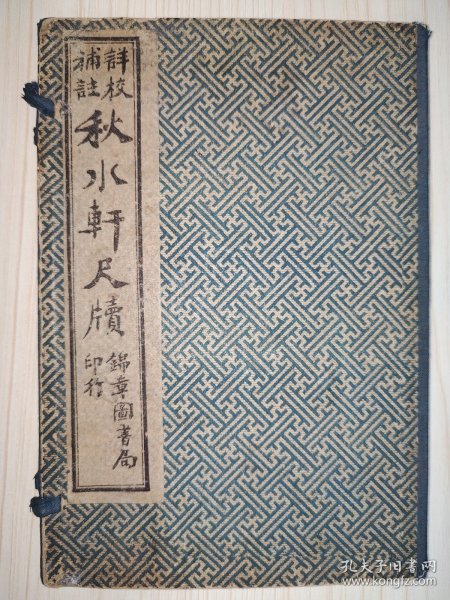 詳校
補註
秋水軒尺牘
錦章圖書局
印行
孔夫子旧书网
www.kongfz.com